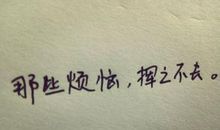 那些烦恼，挥之不去。